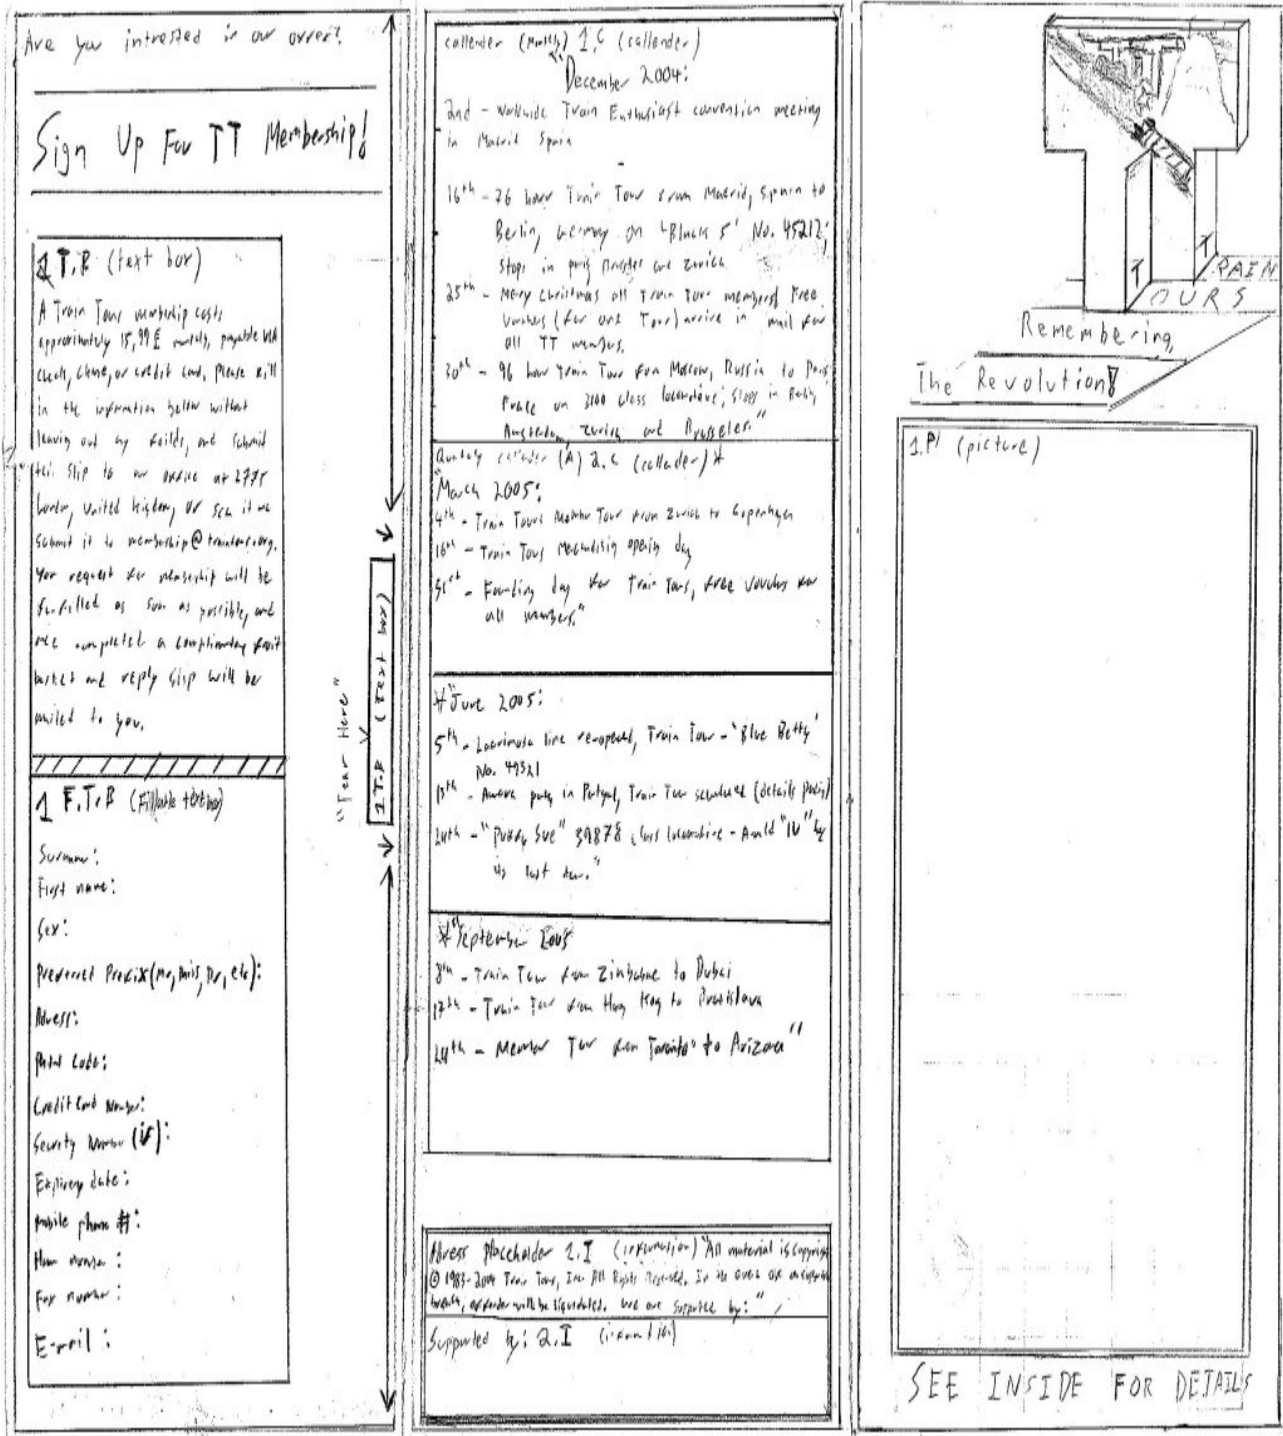 Are you intrested in our offer?
Sign Up For TT Membership!
1 T.B (text box)
A Train Tours membership costs
approximately 15,99 £ monthly, payable VIA
check, or credit card, please fill
in the information below without
leaving out any feilds, and submit
this slip to our office at 2775
London, United Kingdom, or scan it and
submit it to membership@traintours.org.
Your request for membership will be
as soon as possible, and
once completed a complimentary fruit
basket and reply slip will be
mailed to you.
1 F.T.B (Fillable textbox)
Surname:
First name:
Sex:
Preferred Prefix (Mr, Miss, Dr, etc):
Adress:
Postal Code:
Credit Card Number:
Security Number (if):
Expirey date:
Mobile phone #:
Home number:
Fax number:
E-mail:
"Tear Here"
2.T.B (text box)
callender (Monthly) 1.C (callender)
December 2004:
2nd - Worldwide Train Enthusiast convention meeting
in Madrid Spain
16th - 76 hour Train Tour from Madrid, Spain to
Berlin, Germany on 'Black 5' No. 45212;
stops in paris and zurich
25th - Merry Christmas all Train Tour members! Free
Vouchers (for one Tour) arrive in mail for
all TT members.
30th - 96 hour Train Tour from Moscow, Russia to Paris
France on 3100 class locomotive; stops in
Amsterdam, zurich and Brusseles."
callender (A) 2.C (callender) *
"March 2005:
4th - Train Tours Member Tour from Zurich to Copenhagen
16th - Train Tours opening day
31st - Founding day for Train Tours, free vouchers for
all members."
*"June 2005:
5th - Lacrimosa line re-opened, Train Tour - 'Blue Betty'
No. 49321
13th - in Portugal, Train Tour scheduled (details)
24th - 39878 class locomotive - "IV"
its last tour."
*"September 2005
8th - Train Tour from Zimbabwe to Dubai
17th - Train Tour from Hong Kong to Bratislava
24th - Member Tour from Toronto to Arizona"
Adress Placeholder 1.I (information) "All material is Copyright
© 1983-2004 Train Tours, Inc. All Rights Reserved. In the event of
breach, offender will be liquidated. We are supported by:"
Supported by: 2.I (information)
T T
RAIN
OURS
Remembering
The Revolution!
1.PI (picture)
SEE INSIDE FOR DETAILS